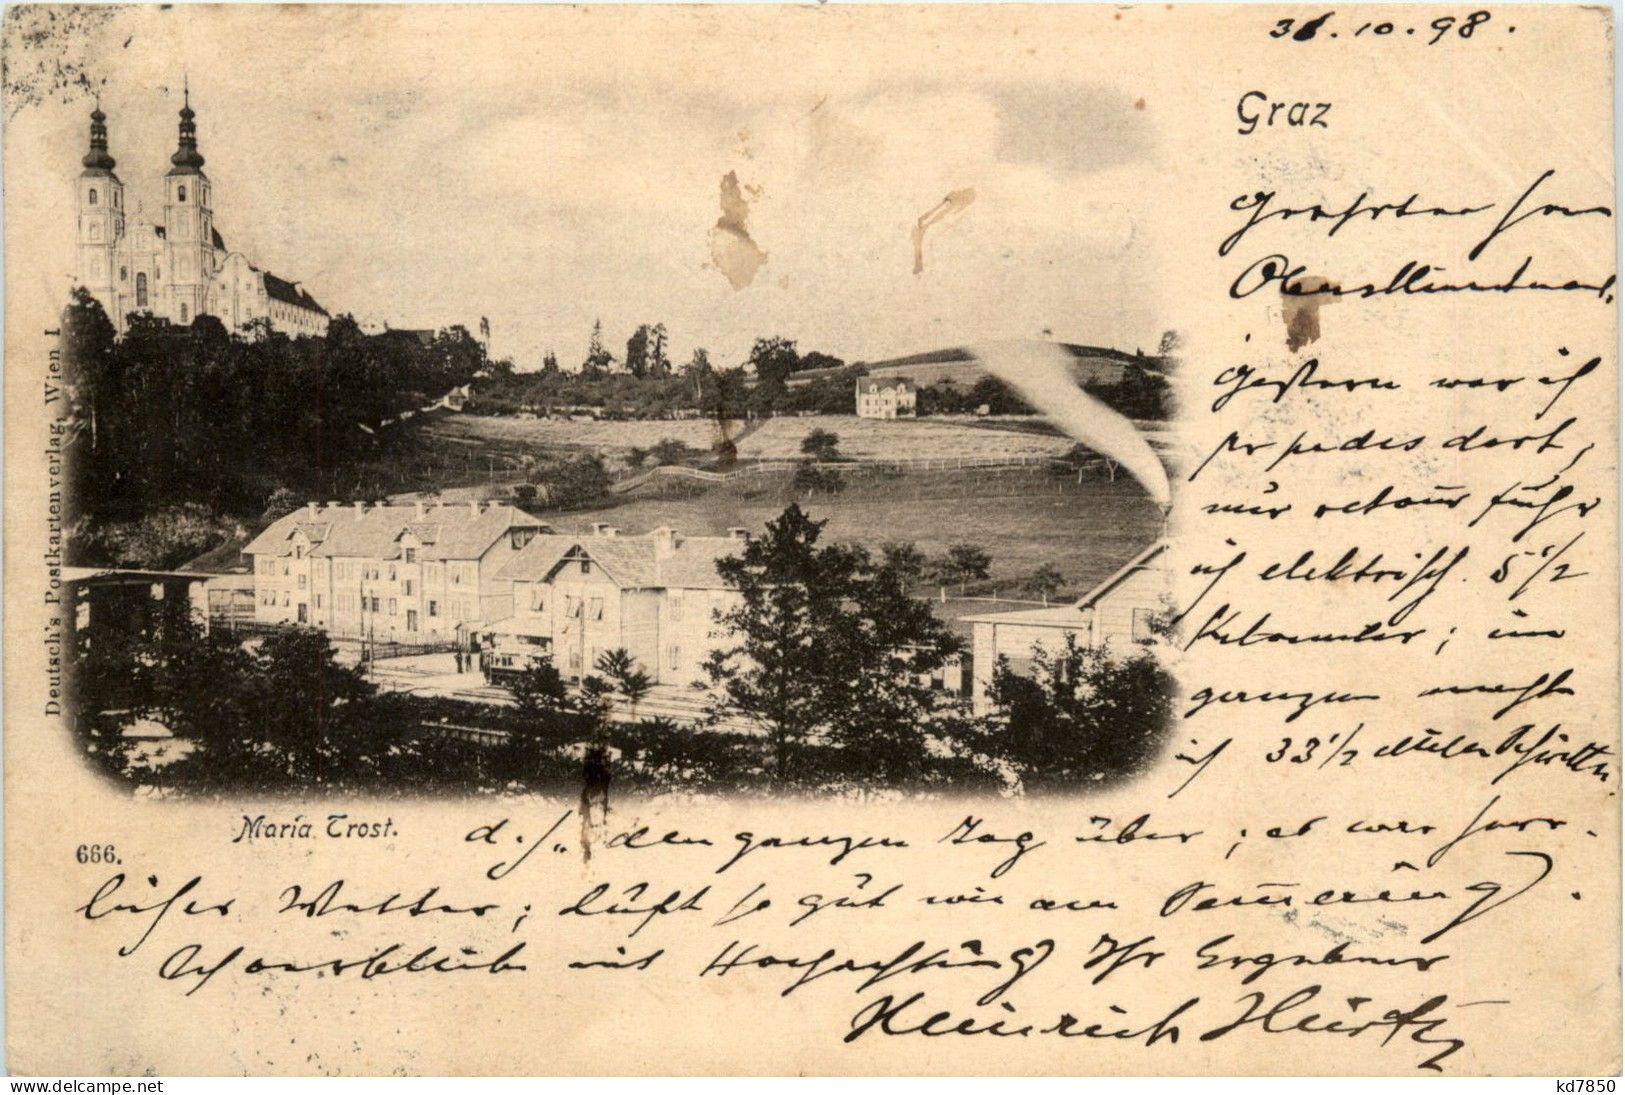 31.10.98.
Graz
Geehrter Herr
Oberstlieutenant.
Gestern war ich
per pedes dort,
nur retour fuhr
ich elektrisch. 5 1/2
Kilometer; im
ganzen machte
ich 33 1/2 Schritte
d. h. den ganzen Tag über; es war herr-
liches Wetter; Luft so gut wie am Semmering.
Ich verbleibe mit Hochachtung Ihr Ergebener
Heinrich
Maria Trost.
666.
Deutsch's Postkartenverlag, Wien I
kd7850